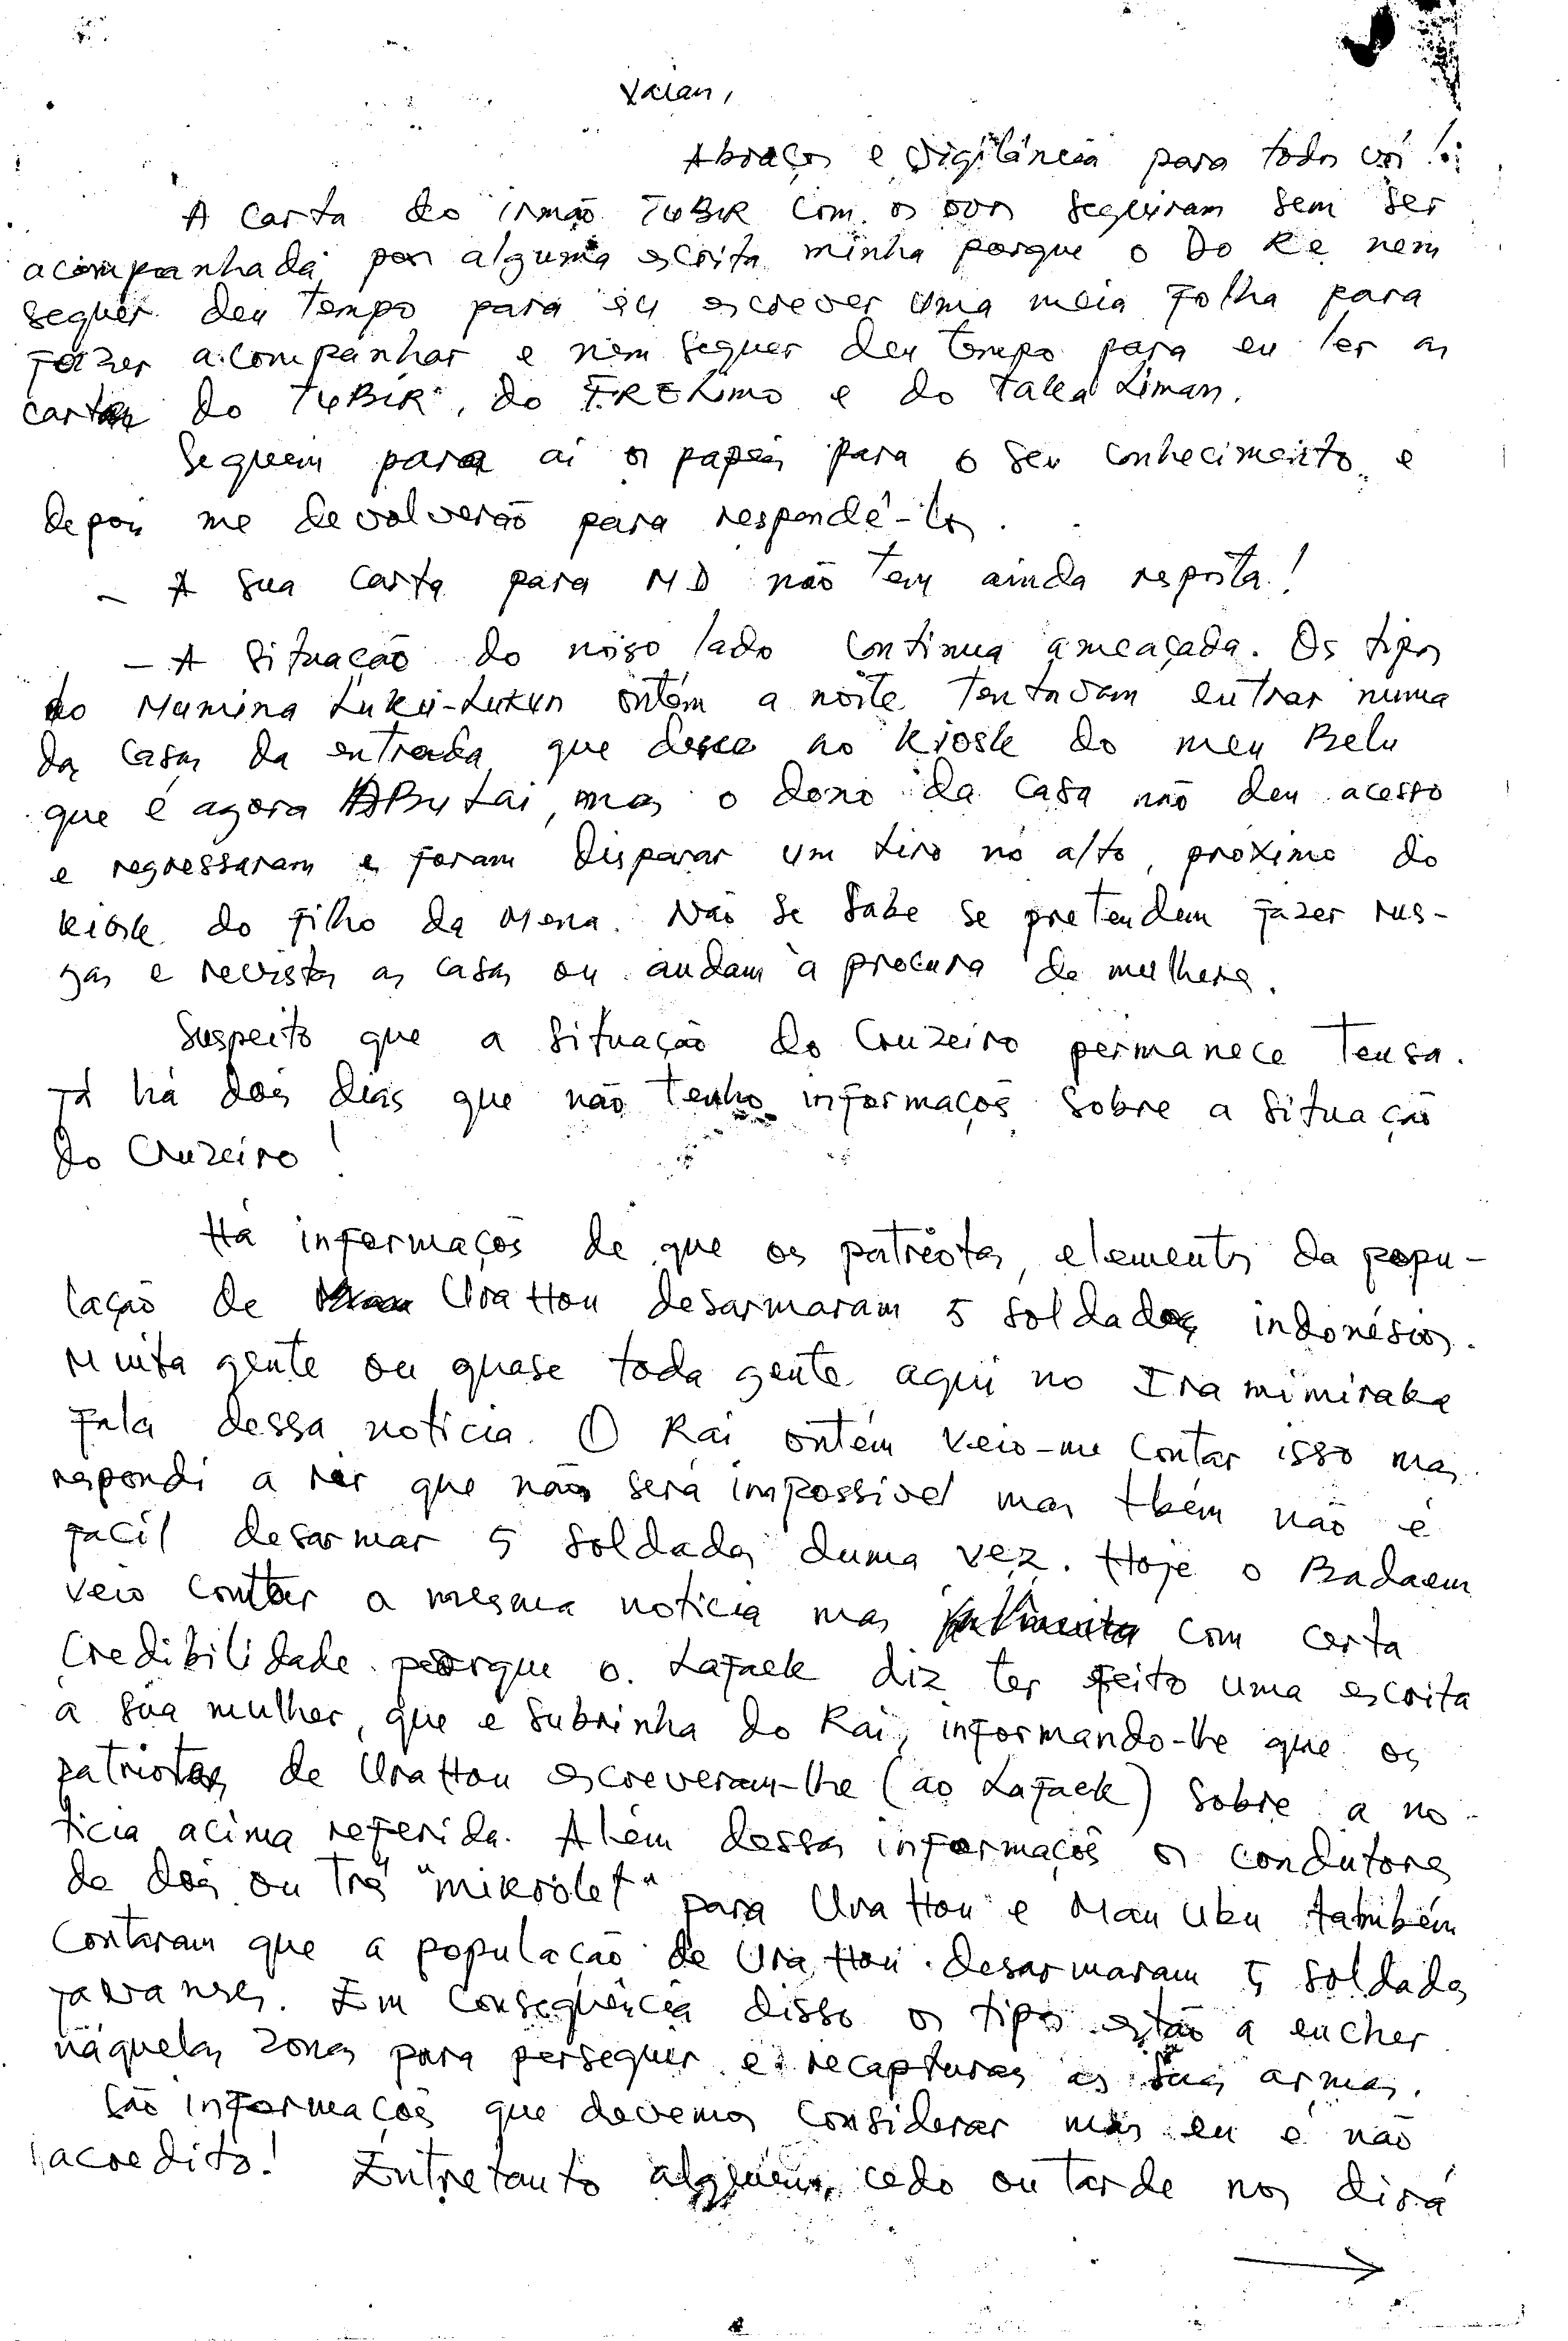 Vaian,
Abraços e vigilância para todos vós!
A carta do irmão TUBIR com os ovos seguiram sem ser
acompanhada por alguma escrita minha porque o Do Re nem
sequer deu tempo para eu escrever uma meia folha para
fazer acompanhar e nem sequer deu tempo para eu ler as
cartas do TUBIR, do FRELIMO e do Talea Liman.
Seguem para aí os papéis para o seu conhecimento e
depois me devolverão para respondê-los.
- A sua carta para MD não tem ainda resposta!
- A situação do nosso lado continua ameaçada. Os tipos
do Mumina Luku-Lukun ontem a noite tentavam entrar numa
das casas da entrada que desce ao kiosk do meu Belu
que é agora ABuLai, mas o dono da casa não deu acesso
e regressaram e foram disparar um tiro no alto, próximo do
kiosk do filho da Mena. Não se sabe se pretendem fazer rus-
gas e revistas as casas ou andam à procura de mulheres.
Suspeito que a situação do Cruzeiro permanece tensa.
Já há dois dias que não tenho informações sobre a situação
do Cruzeiro!
Há informações de que os patriotas, elementos da popu-
lação de Ura Hou desarmaram 5 soldados indonésios.
Muita gente ou quase toda gente aqui no Iramimirake
fala dessa noticia. O Rai ontem veio-me contar isso mas
respondi a rir que não será impossivel mas tbém não é
facil desarmar 5 soldados duma vez. Hoje o Badaem
veio contar a mesma noticia mas com certa
credibilidade porque o Lafaek diz ter feito uma escrita
à sua mulher, que e subrinha do Rai, informando-lhe que os
patriotas de Ura Hou escreveram-lhe (ao Lafaek) sobre a no-
ticia acima referida. Além dessas informações os condutores
de dois ou três "mikrolet" para Ura Hou e Mau Ubu também
contaram que a população de Ura Hou desarmaram 5 soldados
javaneses. Em conseqüência disso os tipos estão a encher
naquelas zonas para perseguir e recapturas as suas armas.
São informações que devemos considerar mas eu é não
acredito! Entretanto alguém, cedo ou tarde nos dirá